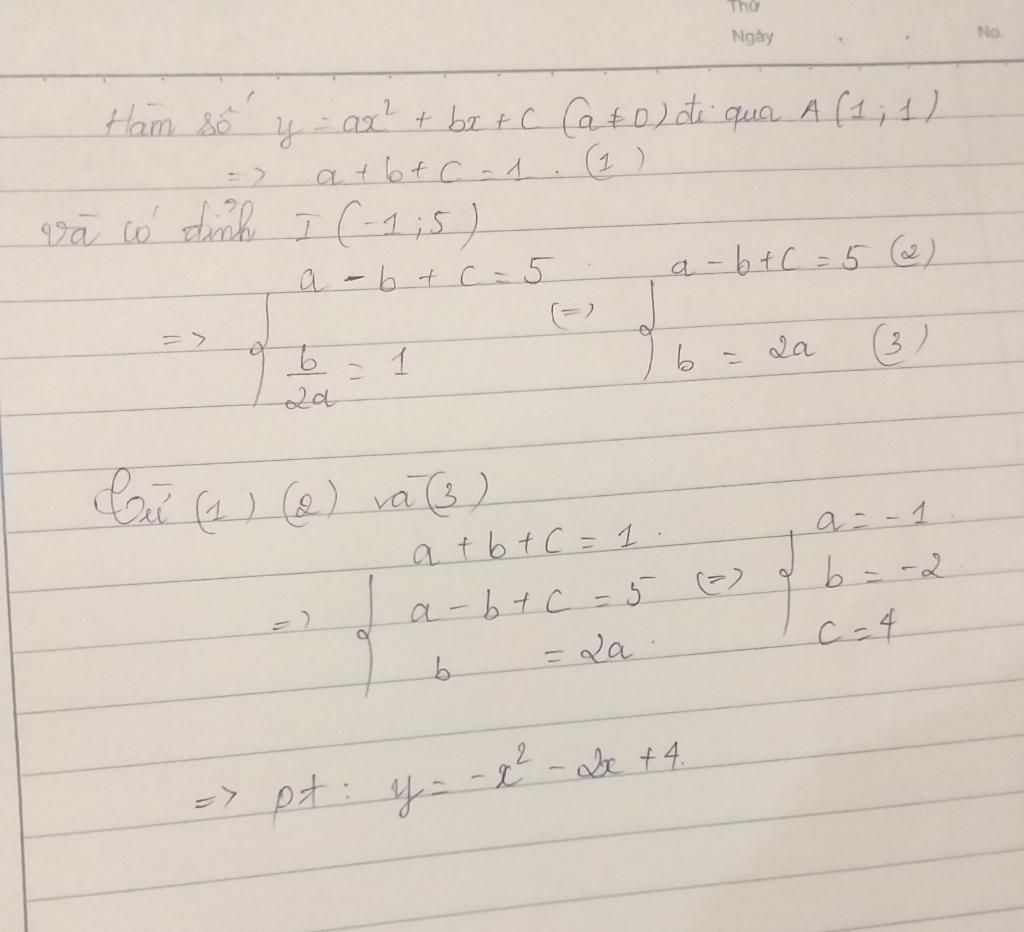 Thứ
Ngày . . No.
Hàm số y = ax² + bx + c (a ≠ 0) đi qua A (1 ; 1)
=> a + b + c = 1 . (1)
và có đỉnh I (-1 ; 5)
a - b + c = 5 a - b + c = 5 (2)
=> { (=) {
b/2a = 1 b = 2a (3)
Từ (1) (2) và (3)
a + b + c = 1 . a = -1
=> { a - b + c = 5 (=) { b = -2
b = 2a . c = 4
=> pt : y = -x² - 2x + 4.